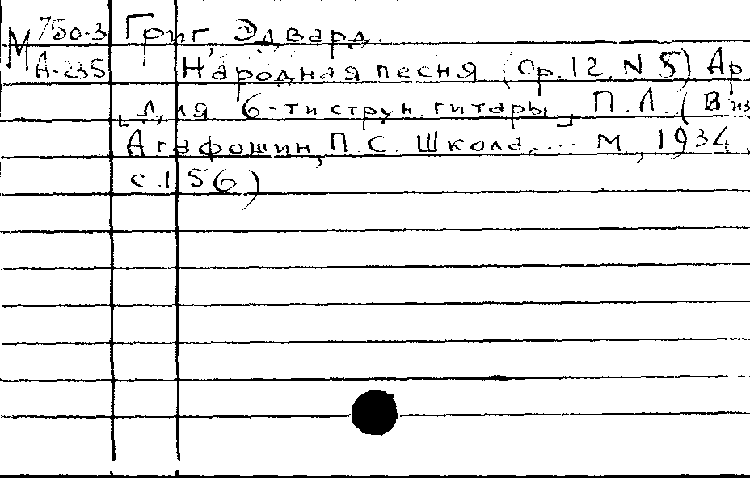 М 750-3 Григ, Эдвард.
А-235 Народная песня (Ор. 12 N 5) Ар
[для 6-ти струн. гитары], П.Л. (В из
Агафошин, П.С. Школа... М, 1934,
с. 156)